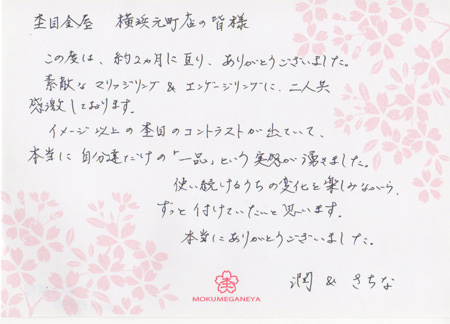 杢目金屋　横浜元町店の皆様
この度は、約2ヵ月に亘り、ありがとうございました。
素敵なマリッジリング & エンゲージリングに、二人共
感激しております。
イメージ以上の杢目のコントラストが出ていて、
本当に自分達だけの「一品」という実感が湧きました。
使い続けるうちの変化を楽しみながら、
ずっと付けていたいと思います。
本当にありがとうございました。
潤 & さちな
MOKUMEGANEYA